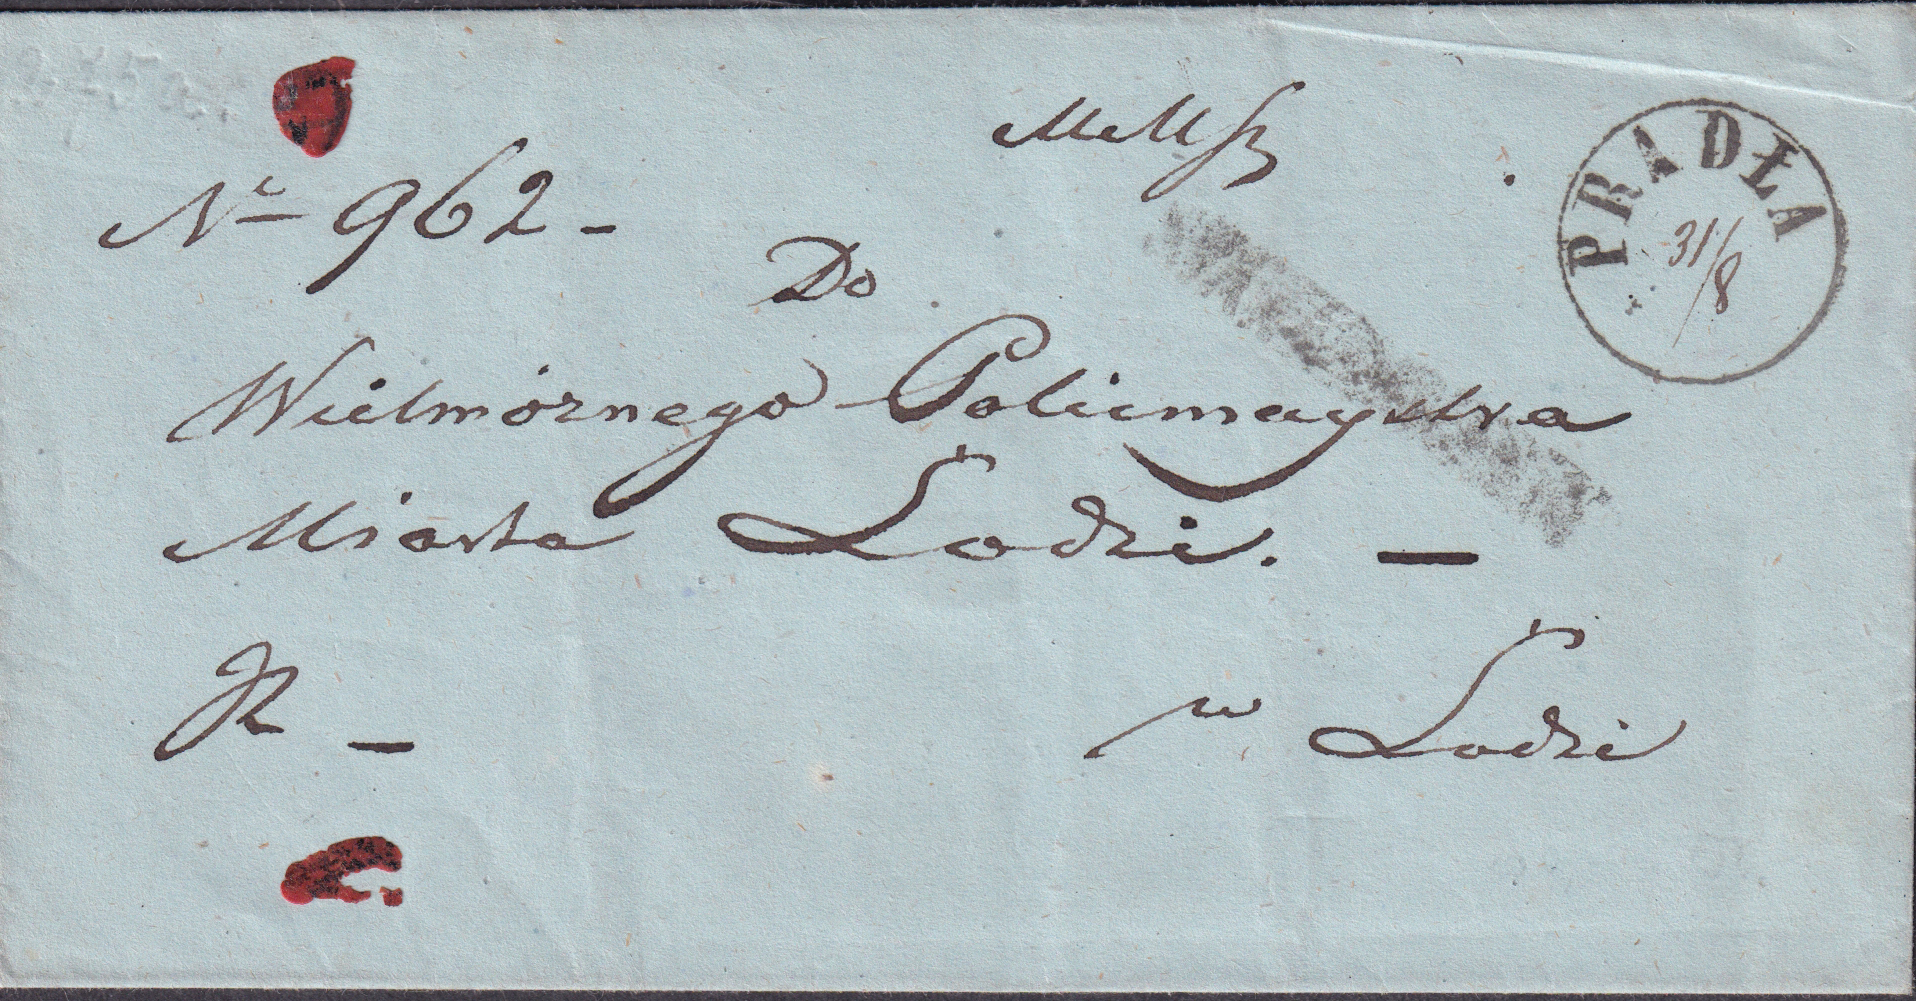 PRADŁA
31/8
Nr 962 -
Do
Wielmożnego Policmaystra
Miasta Łodzi. -
w Łodzi